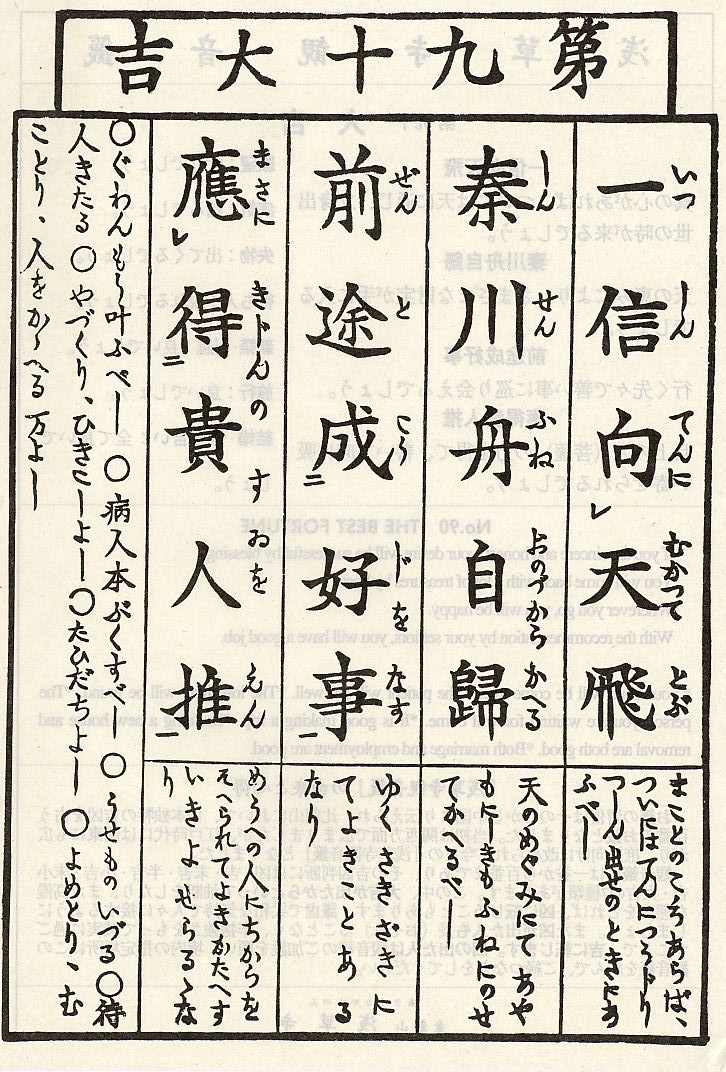 第九十大吉
一信向天飛
いつしんてんにむかつてとぶ
まことのこゝろあらば、
ついには万につゝがり
つしん出世のときにあ
ふべし
秦川舟自歸
しんせんふねおのづからかへる
天のめぐみにて あや
もにしきもふねにのせ
てかへるべし
前途成二好事一
ぜんとこうじをなす
ゆくさきざきに
てよきことある
なり
應レ得二貴人推一
まさにきじんのすゐをえん
めうへの人にちからを
そへられてよきかたへす
いきよせらるゝな
り
〇ぐわんもう叶ふべし 〇病人本ぷくすべし 〇うせものいづる〇待
人きたる 〇やづくり、ひきこしよし〇たびだちよし 〇よめとり、む
ことり、人をかゝへる万よし